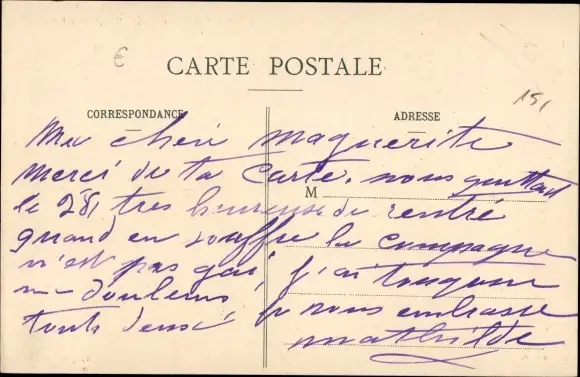 €
CARTE POSTALE
151
CORRESPONDANCE
ADRESSE
M
Ma cheri Maguerite
Merci de ta Carte. nous quittant
le 28 tres heureuse de rentré
quand en souffre la campagne
n'est pas gai, j'ai toujours
me douleurs je vous embrasse
touts deux
Mathilde